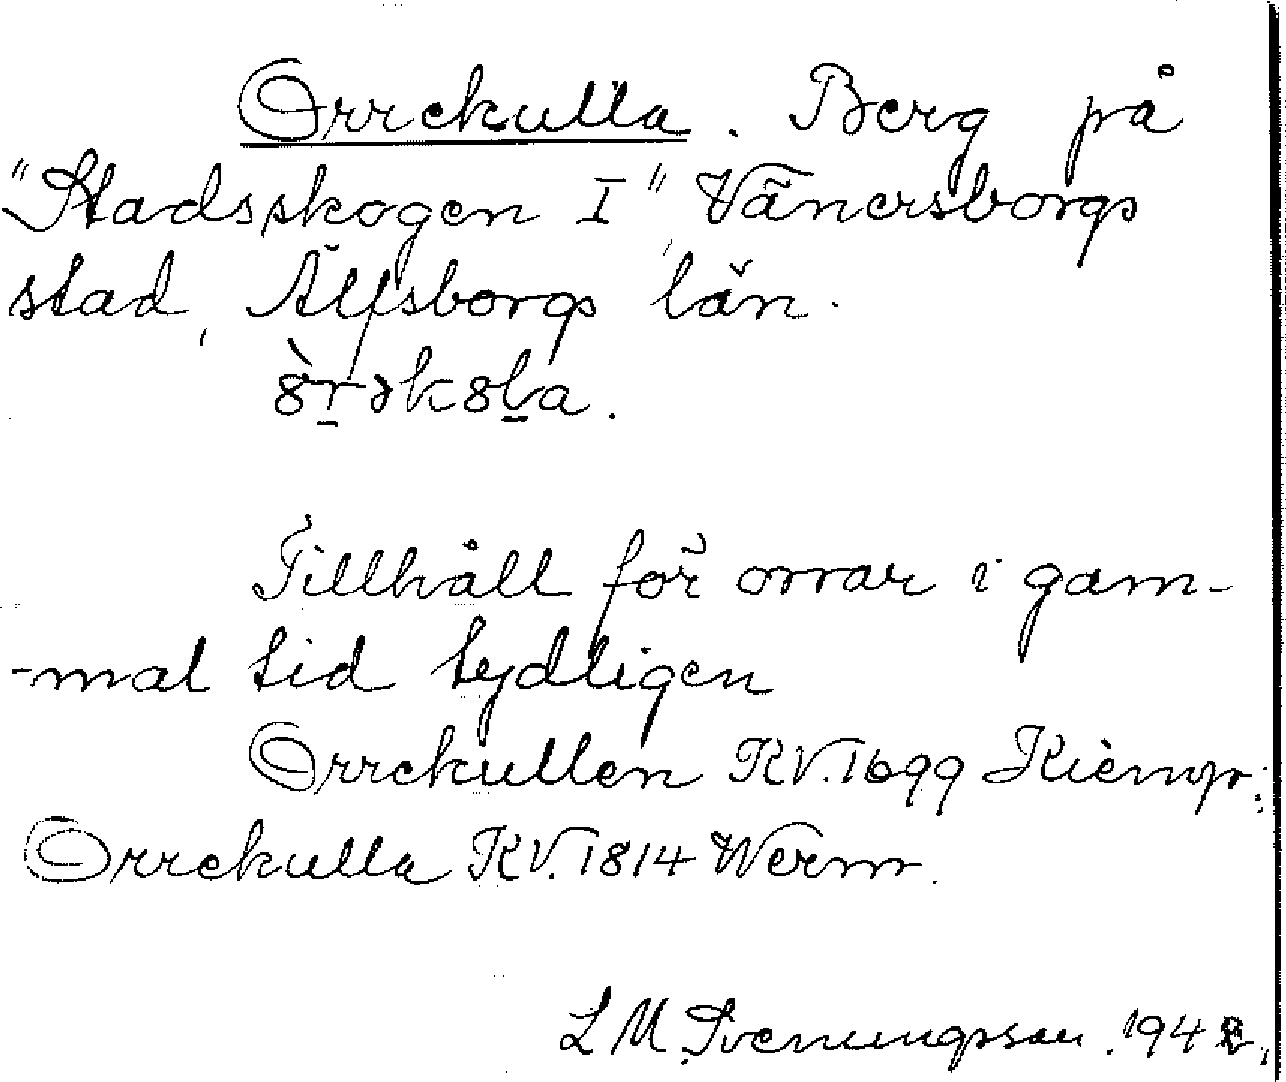 Orrekulla. Berg på
"Stadsskogen I", Vänersborgs
stad, Älfsborgs län.
Tillhåll för orrar i gam-
-mal tid tydligen
Orrekullen KV. 1699 Kiemp:
Orrekulla KV. 1814 Werm.
L M. Svenungsson. 194